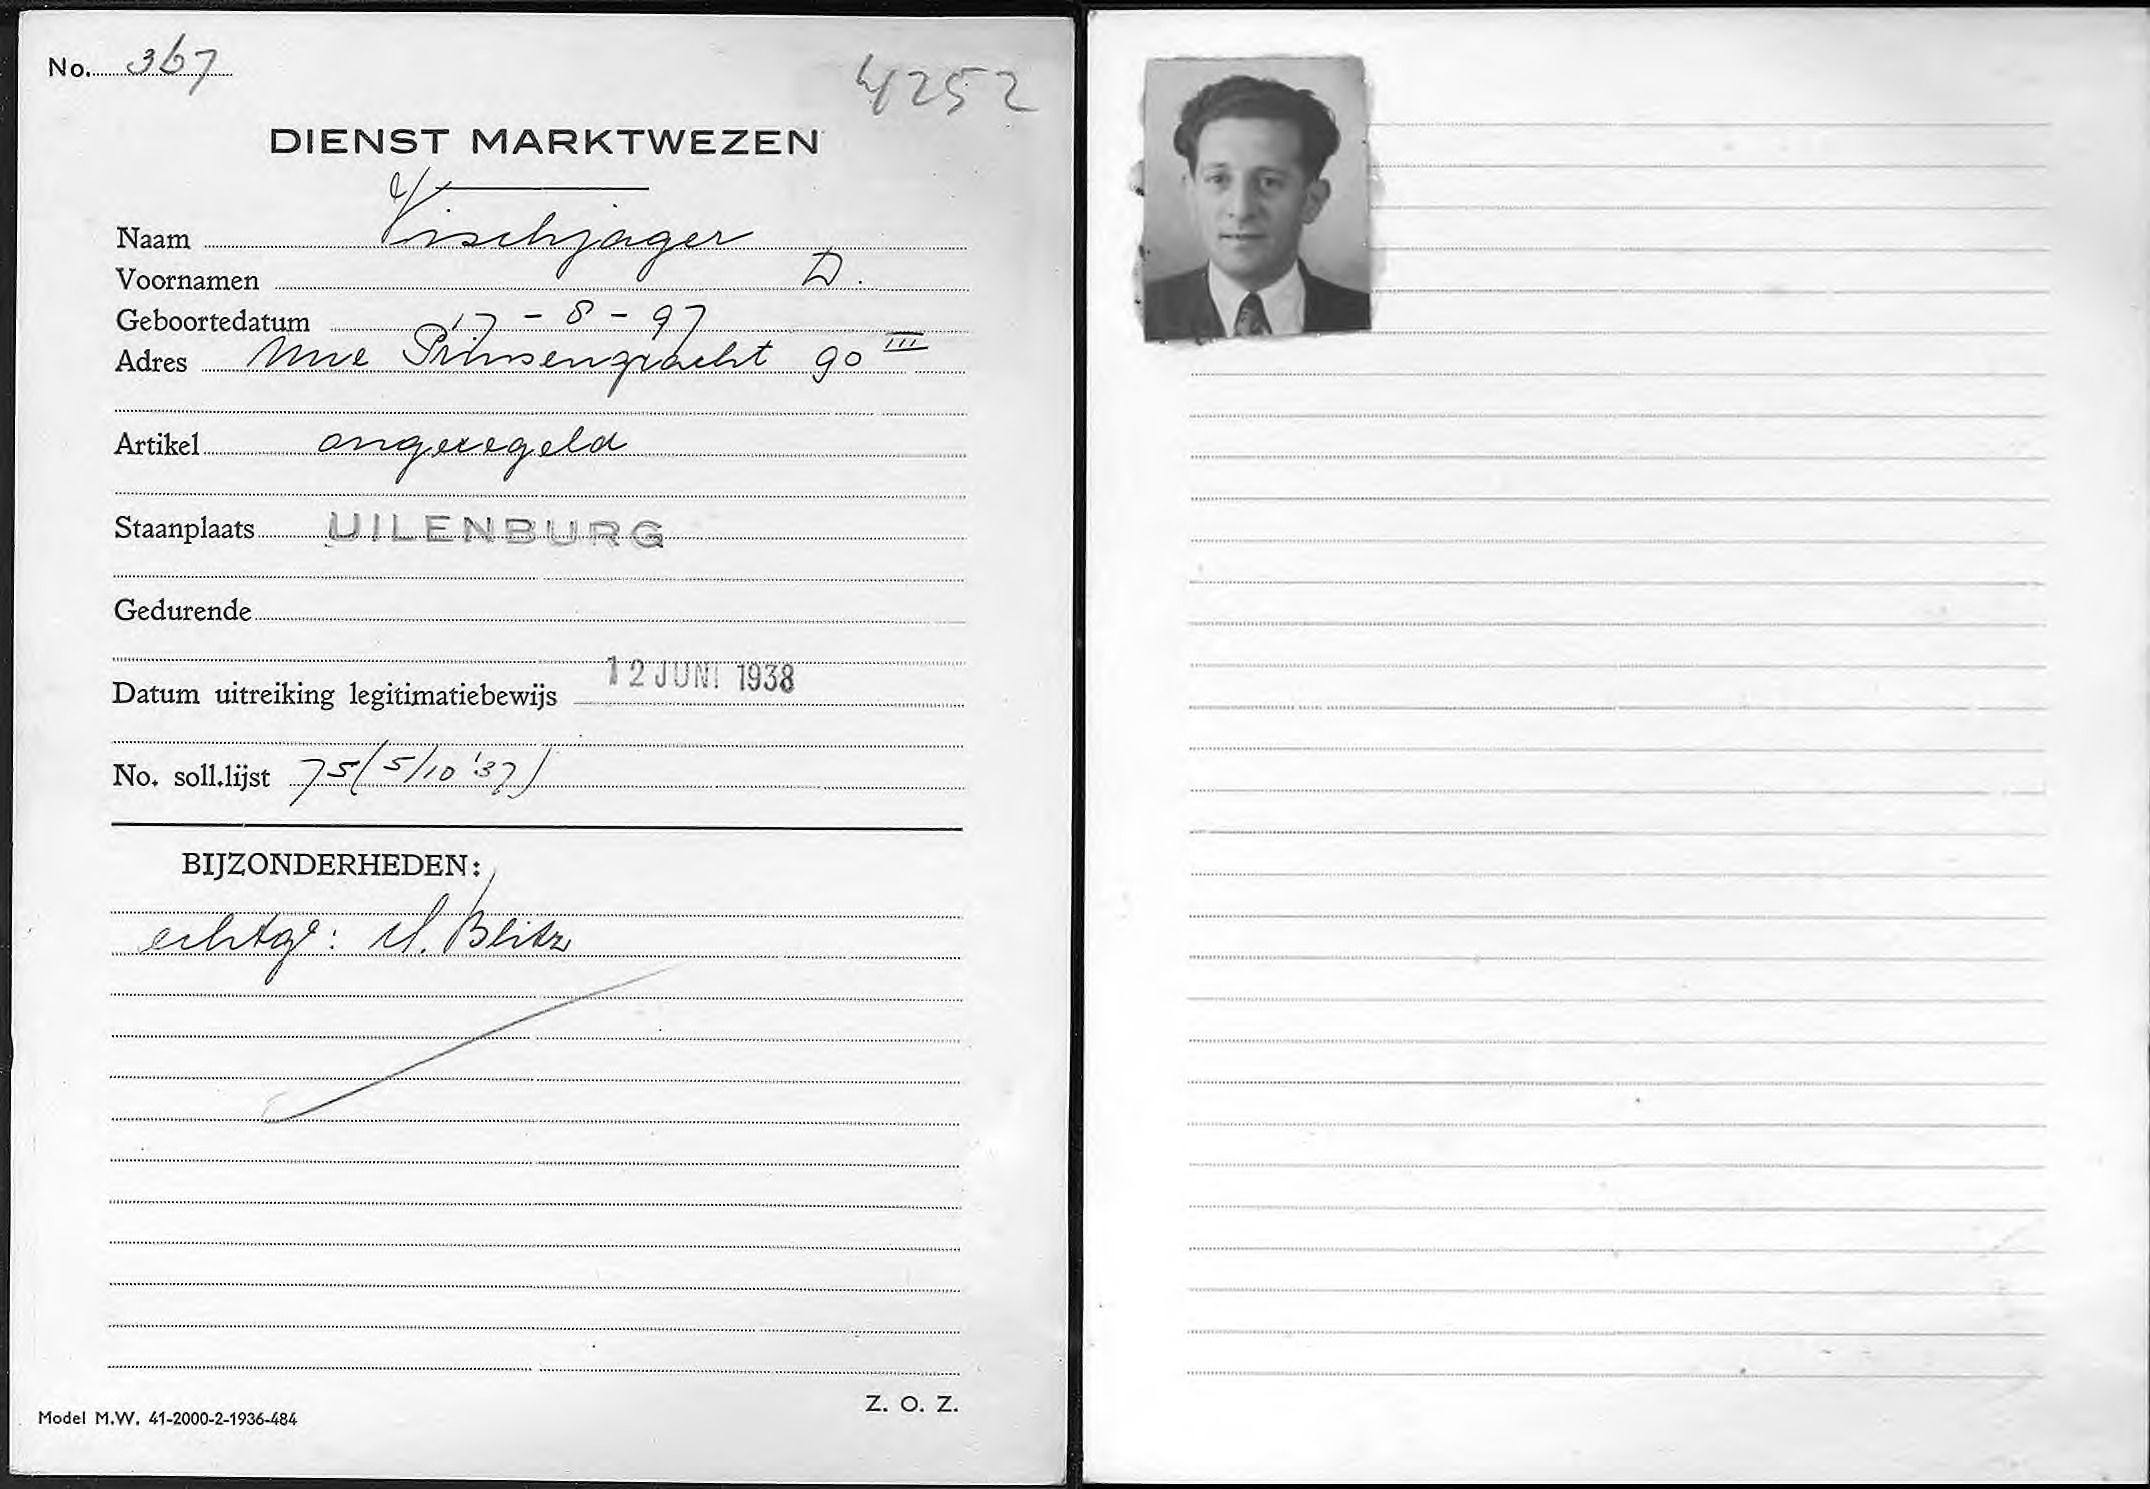 No. 367
4252
DIENST MARKTWEZEN
Naam Vischjager
Voornamen D.
Geboortedatum 17-8-97
Adres Nwe Prinsengracht 90 III
Artikel ongeregeld
Staanplaats UILENBURG
Gedurende
12 JUNI 1938
Datum uitreiking legitimatiebewijs
No. soll.lijst 75 (5/10 '37)
BIJZONDERHEDEN:
echtge: M. Blitz
Z. O. Z.
Model M.W. 41-2000-2-1936-484